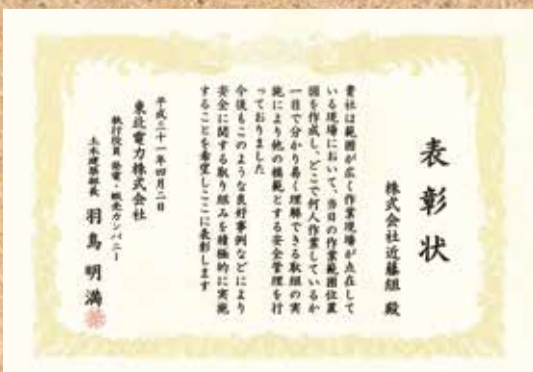 表彰状
株式会社近藤組 殿
貴社は範囲が広く作業現場が点在して
いる現場において、当日の作業範囲位置
図を作成し、どこで何人作業しているか
一目で分かり易く理解できる取組の実
施により他の模範とする安全管理を行
っておりました
今後もこのような良好事例などにより
安全に関する取り組みを積極的に実施
することを希望しここに表彰します
平成三十一年四月二日
東北電力株式会社
執行役員 発電・販売カンパニー
土木建築部長 羽鳥明満